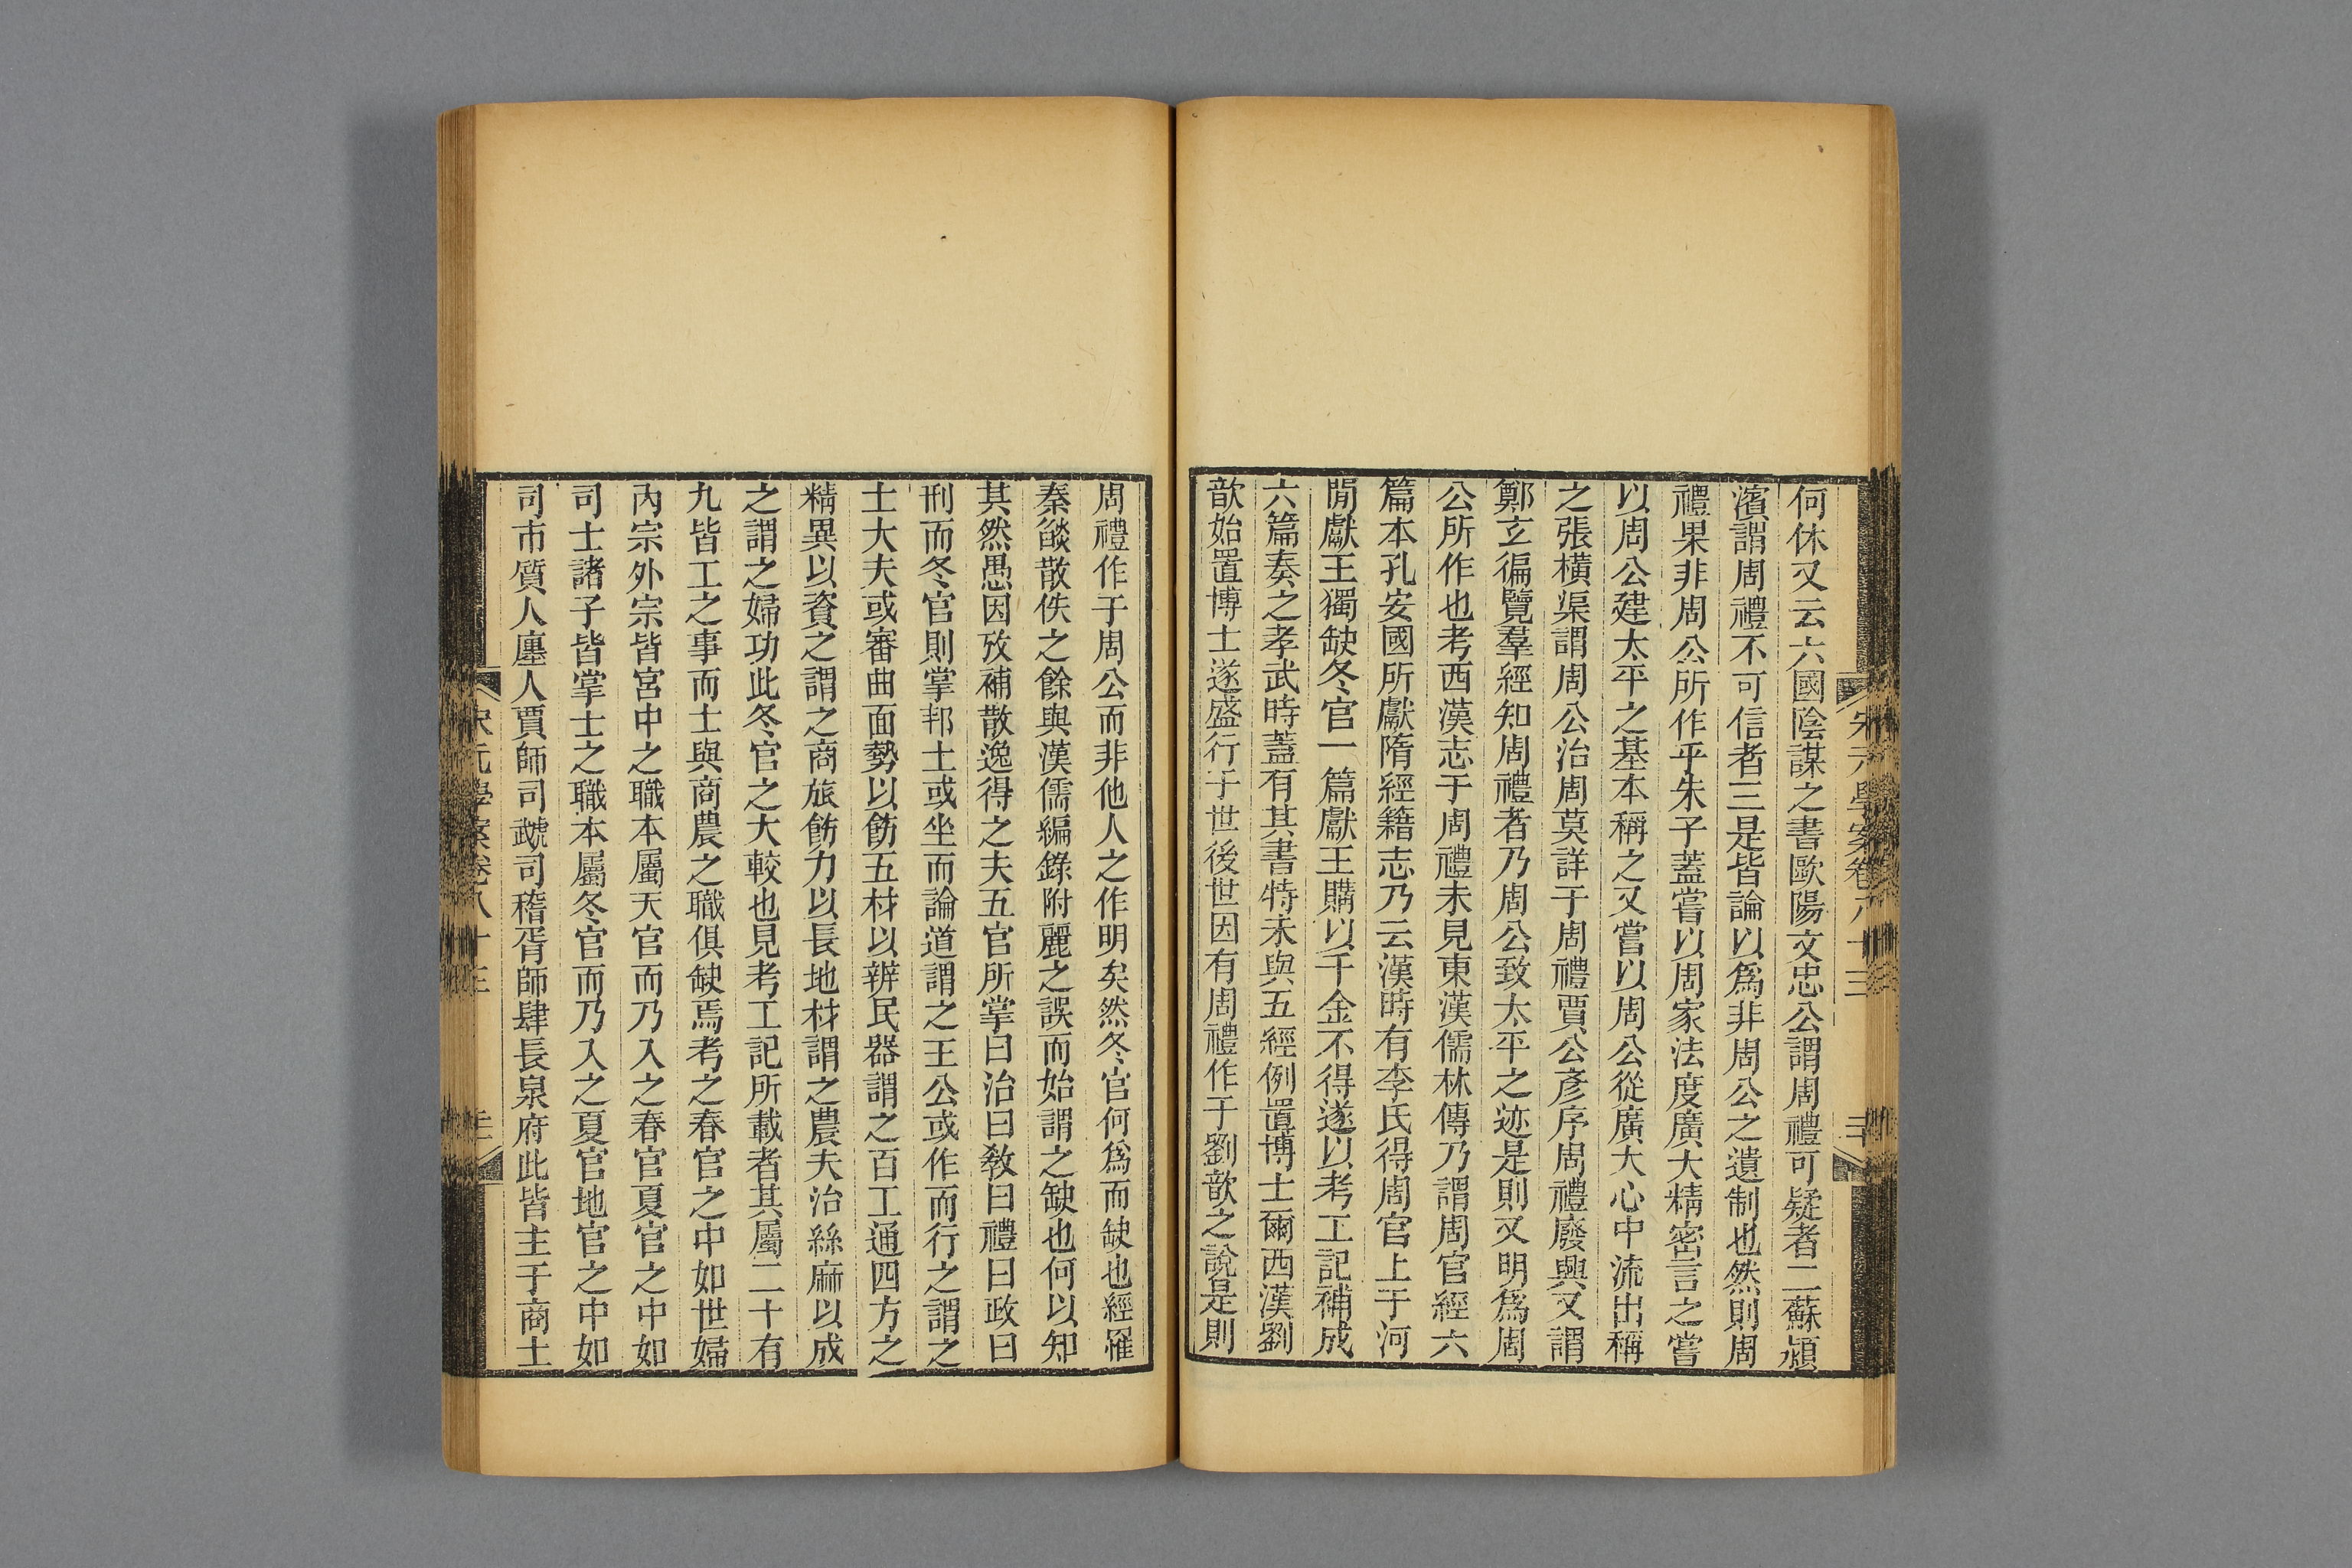 宋元學案卷八十三
何休又云六國陰謀之書歐陽文忠公謂周禮可疑者二蘇潁
濱謂周禮不可信者三是皆論以爲非周公之遺制也然則周
禮果非周公所作乎朱子蓋嘗以周家法度廣大精密言之嘗
以周公建太平之基本稱之又嘗以周公從廣大心中流出稱
之張橫渠謂周公治周莫詳于周禮賈公彥序周禮廢興又謂
鄭玄徧覽羣經知周禮者乃周公致太平之迹是則又明爲周
公所作也考西漢志于周禮未見東漢儒林傳乃謂周官經六
篇本孔安國所獻隋經籍志乃云漢時有李氏得周官上于河
閒獻王獨缺冬官一篇獻王購以千金不得遂以考工記補成
六篇奏之孝武時蓋有其書特未與五經例置博士爾西漢劉
歆始置博士遂盛行于世後世因有周禮作于劉歆之說是則
周禮作于周公而非他人之作明矣然冬官何爲而缺也經羅
秦燄散佚之餘與漢儒編錄附麗之誤而始謂之缺也何以知
其然愚因攷補散逸得之夫五官所掌曰治曰敎曰禮曰政曰
刑而冬官則掌邦土或坐而論道謂之王公或作而行之謂之
士大夫或審曲面勢以飭五材以辨民器謂之百工通四方之
精異以資之謂之商旅飭力以長地材謂之農夫治絲麻以成
之謂之婦功此冬官之大較也見考工記所載者其屬二十有
九皆工之事而士與商農之職俱缺焉考之春官之中如世婦
內宗外宗皆宮中之職本屬天官而乃入之春官夏官之中如
司士諸子皆掌士之職本屬冬官而乃入之夏官地官之中如
司市質人廛人賈師司虣司稽胥師肆長泉府此皆主于商土
宋元學案卷八十三